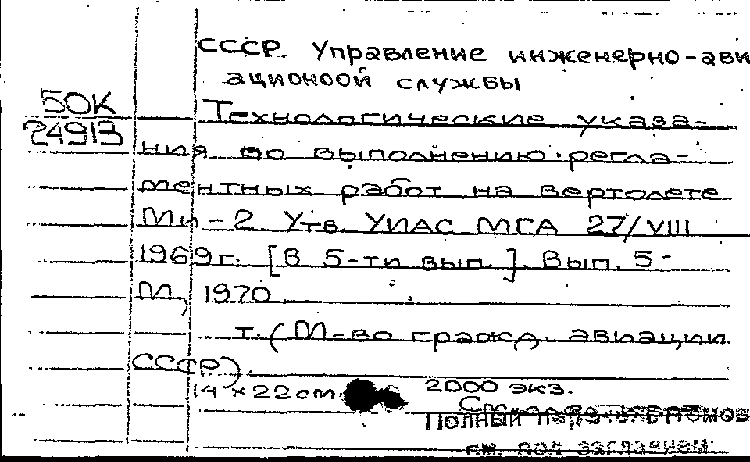 СССР. Управление инженерно-ави
ационоой службы
50К
24913
Технологические указа-
ния по выполнению регла-
ментных работ на вертолете
Ми-2. Утв. УИАС МГА 27/VIII
1969г. [В 5-ти вып.]. Вып. 5-
М., 1970.
т. (М-во гражд. авиации
СССР).
14×22см 2000 экз.
Полный
см. под заглавием: